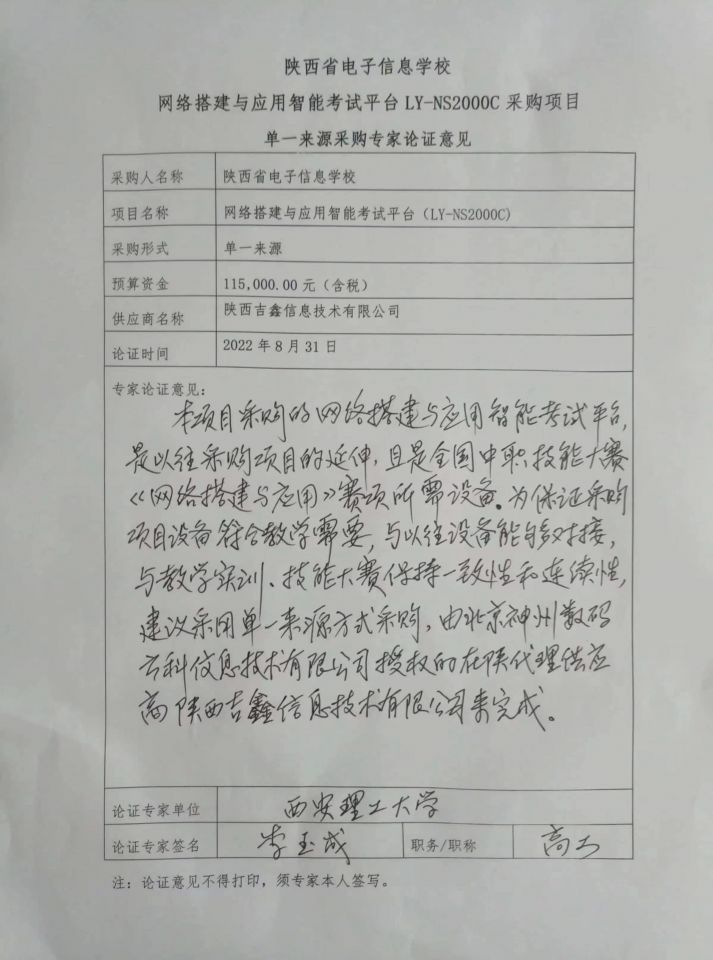 陕西省电子信息学校
网络搭建与应用智能考试平台 LY-NS2000C 采购项目
单一来源采购专家论证意见
采购人名称 陕西省电子信息学校
项目名称 网络搭建与应用智能考试平台（LY-NS2000C)
采购形式 单一来源
预算资金 115,000.00 元（含税）
供应商名称 陕西吉鑫信息技术有限公司
论证时间 2022 年 8 月 31 日
专家论证意见：
本项目采购的网络搭建与应用智能考试平台,
是以往采购项目的延伸,且是全国中职技能大赛
《网络搭建与应用》赛项所需设备。为保证采购
项目设备符合教学需要,与以往设备能够对接,
与教学实训、技能大赛保持一致性和连续性,
建议采用单一来源方式采购,由北京神州数码
云科信息技术有限公司授权的在陕代理供应
商陕西吉鑫信息技术有限公司来完成。
论证专家单位 西安理工大学
论证专家签名 李玉成 职务/职称 高工
注：论证意见不得打印，须专家本人签写。